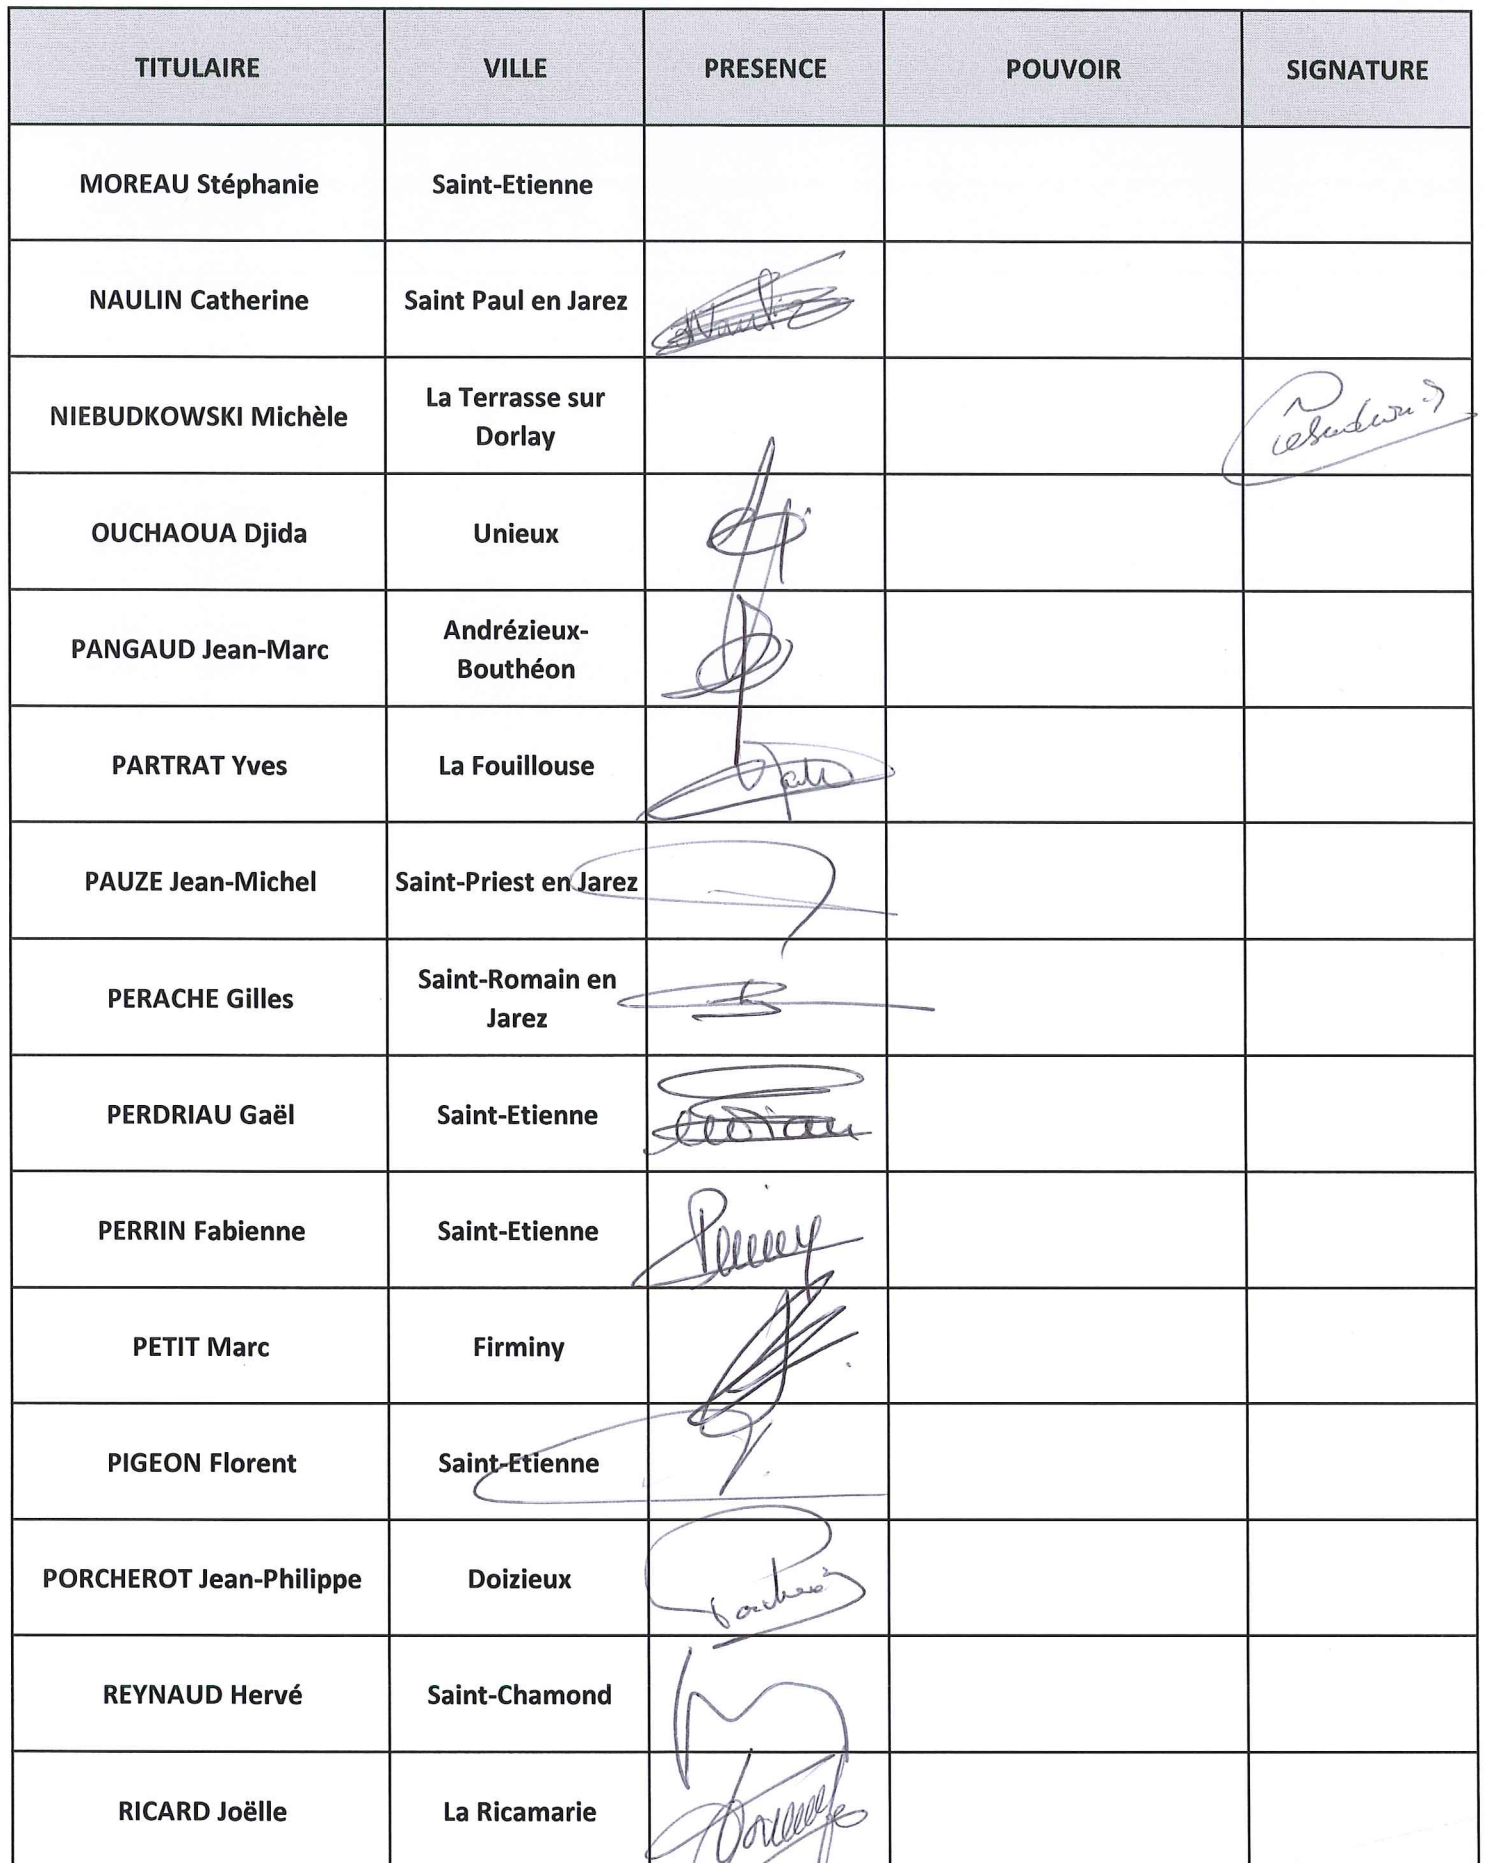 TITULAIRE VILLE PRESENCE POUVOIR SIGNATURE
MOREAU Stéphanie Saint-Etienne
NAULIN Catherine Saint Paul en Jarez
NIEBUDKOWSKI Michèle La Terrasse sur
Dorlay
OUCHAOUA Djida Unieux
PANGAUD Jean-Marc Andrézieux-
Bouthéon
PARTRAT Yves La Fouillouse
PAUZE Jean-Michel Saint-Priest en Jarez
PERACHE Gilles Saint-Romain en
Jarez
PERDRIAU Gaël Saint-Etienne
PERRIN Fabienne Saint-Etienne
PETIT Marc Firminy
PIGEON Florent Saint-Etienne
PORCHEROT Jean-Philippe Doizieux
REYNAUD Hervé Saint-Chamond
RICARD Joëlle La Ricamarie